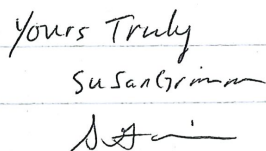 Yours Truly
Susan Grimm